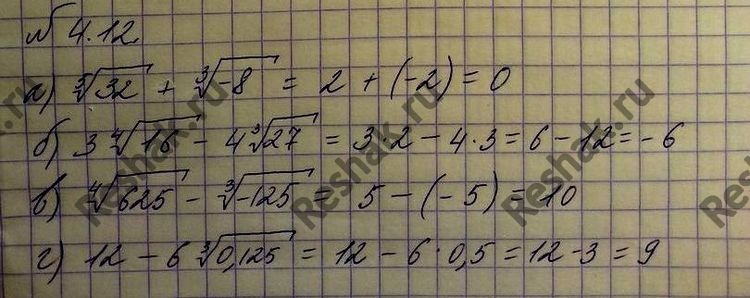 № 4.12.
а) ⁵√32 + ³√-8 = 2 + (-2) = 0
б) 3 ⁴√16 - 4 ³√27 = 3·2 - 4·3 = 6 - 12 = -6
в) ⁴√625 - ³√-125 = 5 - (-5) = 10
г) 12 - 6 ³√0,125 = 12 - 6·0,5 = 12 - 3 = 9
Reshak.ru
Reshak.ru
Reshak.ru